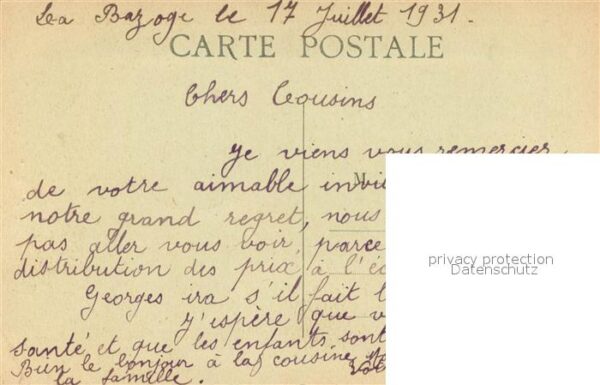 La Bazoge le 17 Juillet 1931.
CARTE POSTALE
Chers Cousins
Je viens vous remercier
de votre aimable invi
notre grand regret, nous
pas aller vous voir, parce
distribution des prix à l'éc
Georges ira s'il fait
J'espère que v
santé et que les enfants sont
Bien le bonjour à la cousine
la famille.
privacy protection
Datenschutz